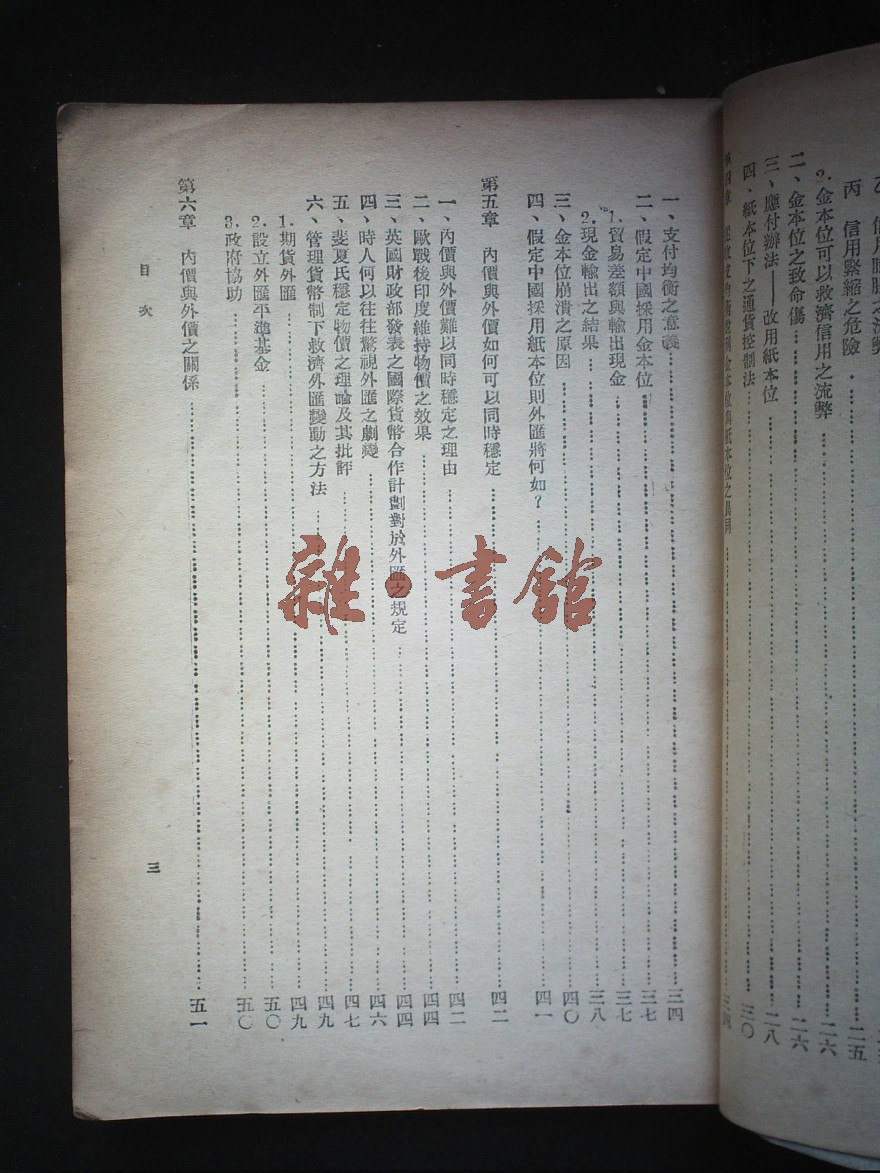 丙　信用緊縮之危險……二五
2.金本位可以救濟信用之流弊……二六
二、金本位之致命傷……二六
三、應付辦法——改用紙本位……二八
四、紙本位下之通貨控制法……三〇
金本位與紙本位之異同……三四
一、支付均衡之意義……三四
二、假定中國採用金本位……三七
1.貿易差額與輸出現金……三七
2.現金輸出之結果……三八
三、金本位崩潰之原因……四〇
四、假定中國採用紙本位則外匯將何如？……四一
第五章　內價與外價如何可以同時穩定……四二
一、內價與外價難以同時穩定之理由……四二
二、歐戰後印度維持物價之效果……四四
三、英國財政部發表之國際貨幣合作計劃對於外匯之規定……四四
四、時人何以往往驚視外匯之劇變……四六
五、斐夏氏穩定物價之理論及其批評……四七
六、管理貨幣制下救濟外匯變動之方法……四九
1.期貨外匯……四九
2.設立外匯平準基金……五〇
3.政府協助……五〇
第六章　內價與外價之關係……五一
目次
三
雜·書館